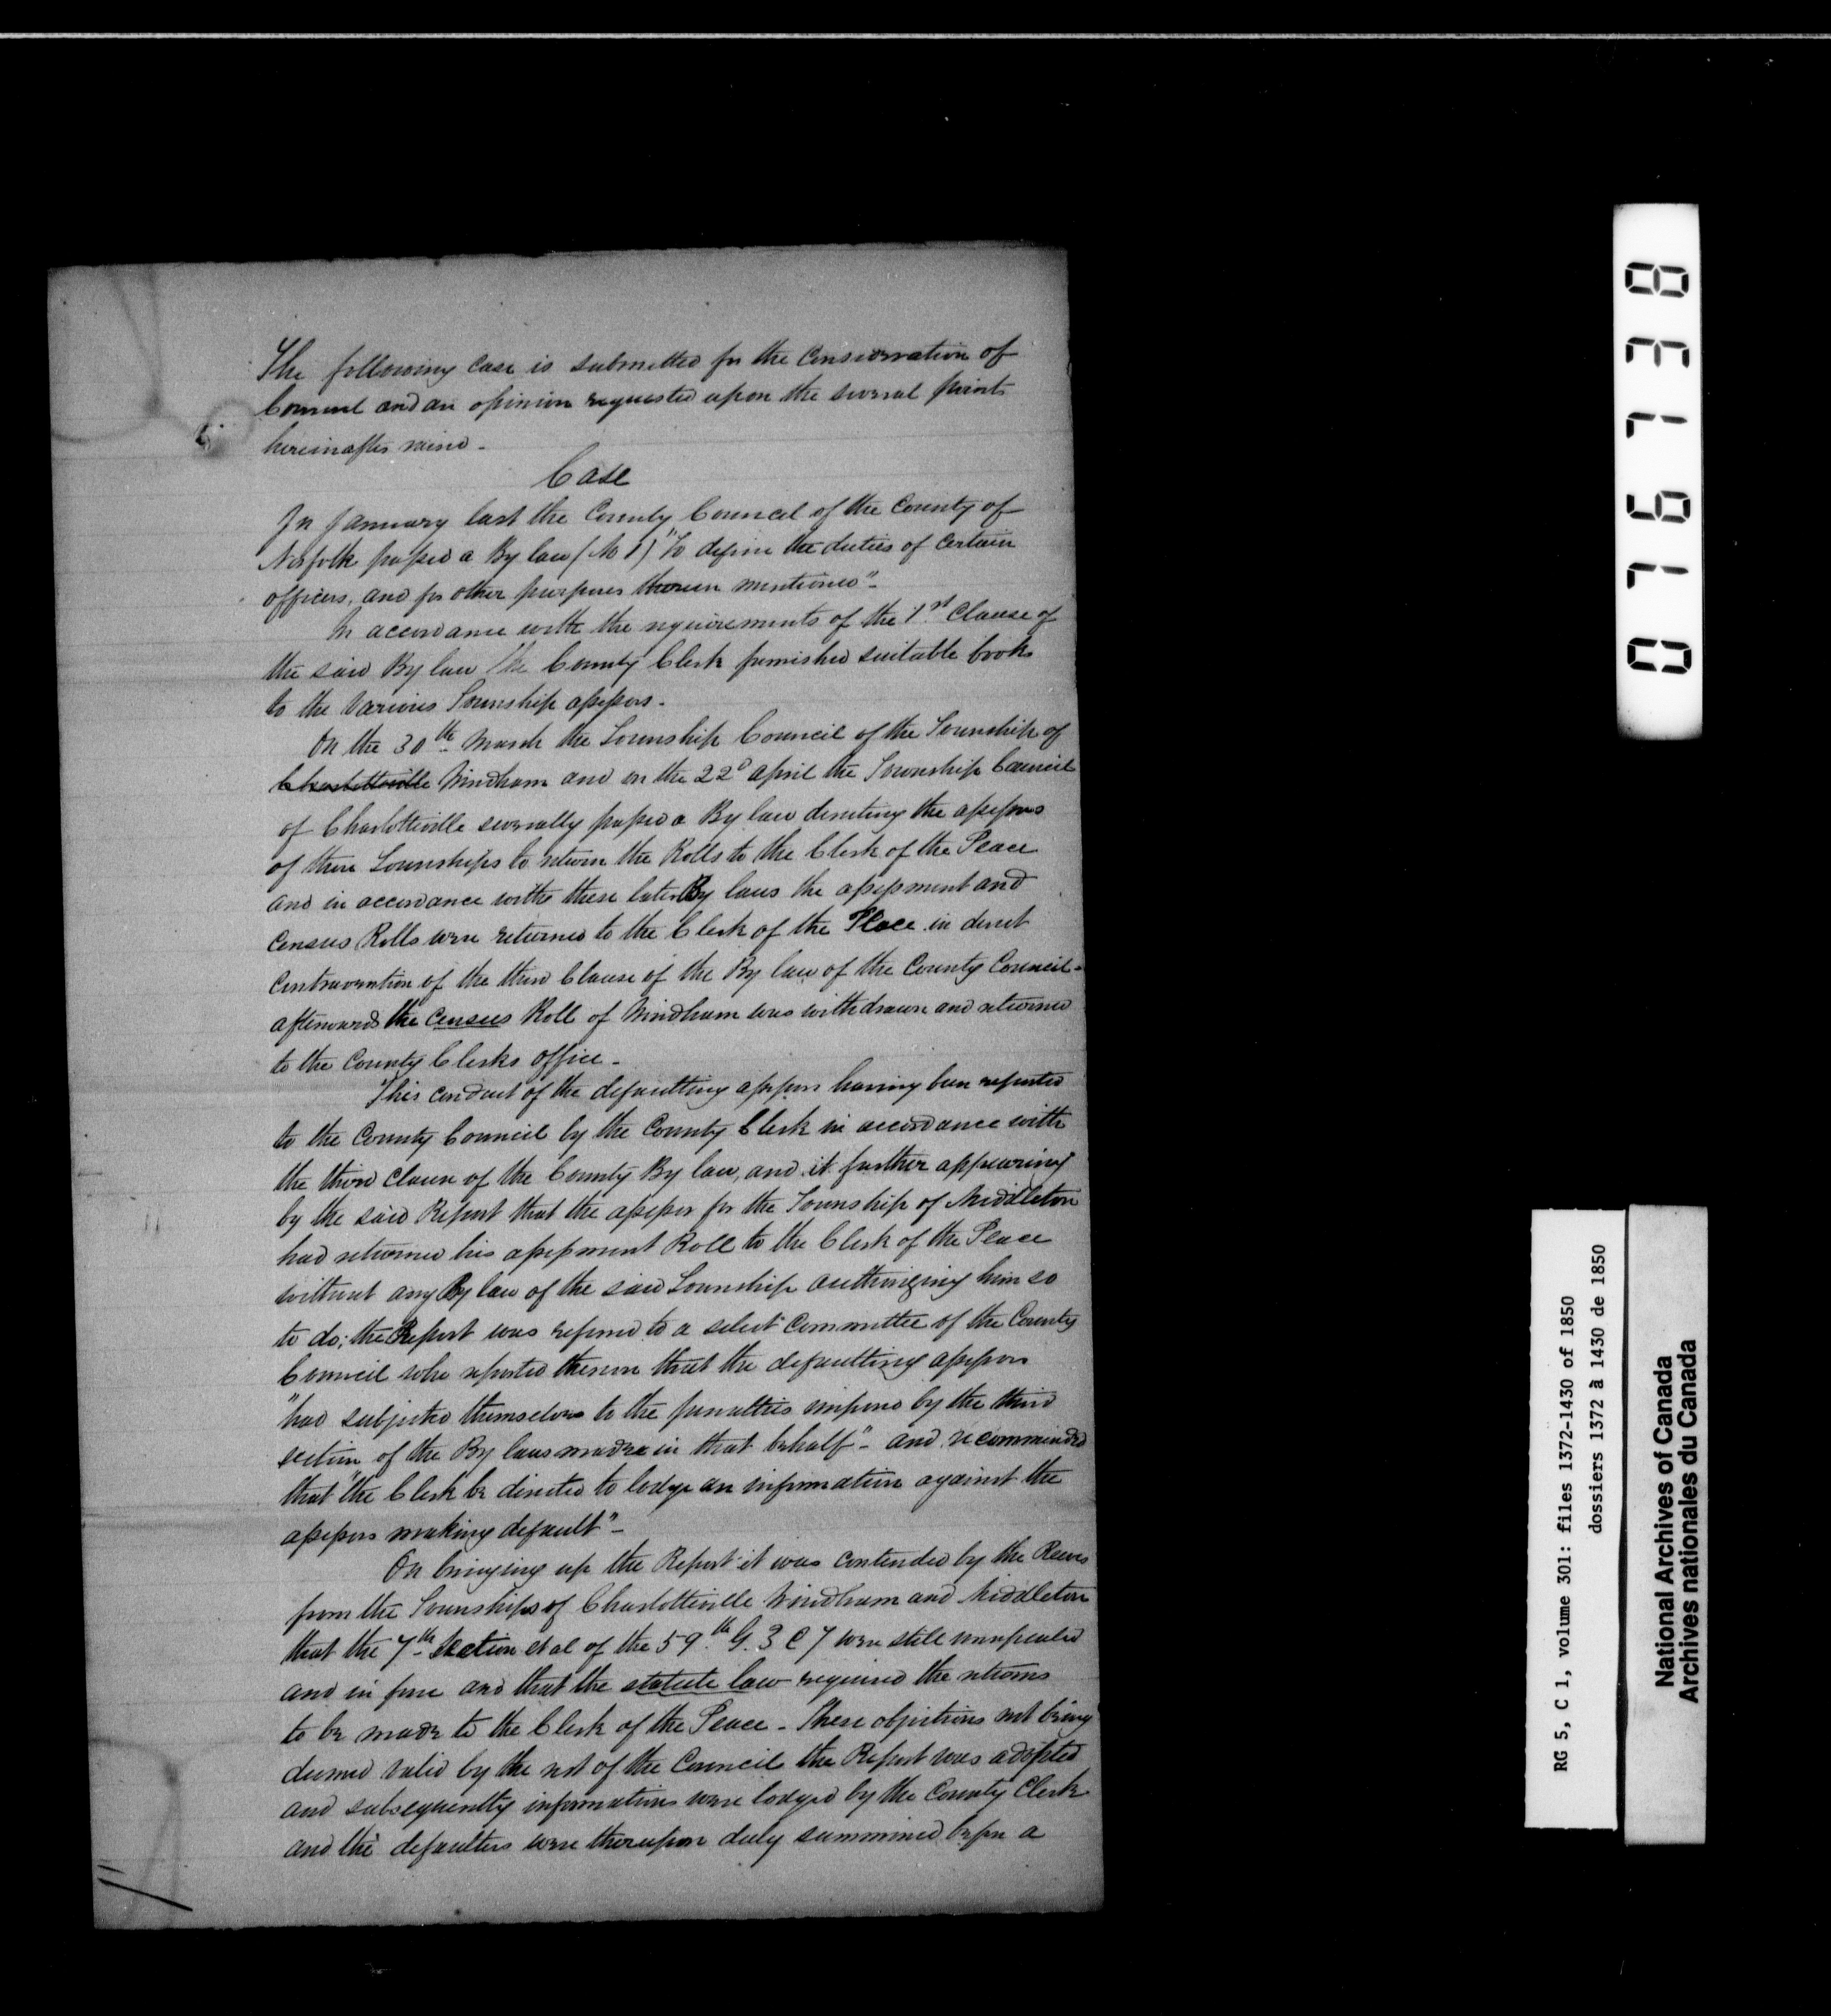 The following case is submitted for the consideration of
Counsel and an opinion requested upon the several points
hereinafter raised -
Case
In January last the County Council of the County of
Norfolk passed a By law (No 1) "To define the duties of certain
officers, and for other purposes therein mentioned" -
In accordance with the requirements of the 1st Clause of
the said By law the County Clerk furnished suitable books
to the various Township assessors -
On the 30th March the Township Council of the Township of
Charlotteville Windham and on the 22d April the Township Council
of Charlotteville severally passed a By law directing the assessors
of these Townships to return the Rolls to the Clerk of the Peace
and in accordance with these later By laws the assessment and
Census Rolls were returned to the Clerk of the Peace in direct
contravention of the third Clause of the By law of the County Council -
afterwards the Census Roll of Windham was withdrawn and returned
to the County Clerks office -
This conduct of the defaulting assessors having been reported
to the County Council by the County Clerk in accordance with
the third clause of the County By law, and it further appearing
by the said Report that the assessor for the Township of Middleton
had returned his assessment Roll to the Clerk of the Peace
without any By law of the said Township authorizing him so
to do; the Report was referred to a select Committee of the County
Council who reported thereon that the defaulting assessors
"had subjected themselves to the penalties imposed by the third
section of the By laws made in that behalf" - and recommended
that "the Clerk be directed to lodge an information against the
assessors making default" -
On bringing up the Report it was contended by the Reeves
from the Townships of Charlotteville Windham and Middleton
that the 7th Section et al of the 59th G. 3 C 7 were still unrepealed
and in force and that the statute law required the returns
to be made to the Clerk of the Peace - These objections not being
deemed valid by the rest of the Council the Report was adopted
and subsequently informations were lodged by the County Clerk
and the defaulters were thereupon duly summoned before a
076738
RG 5, C 1, volume 301: files 1372-1430 of 1850
dossiers 1372 à 1430 de 1850
National Archives of Canada
Archives nationales du Canada